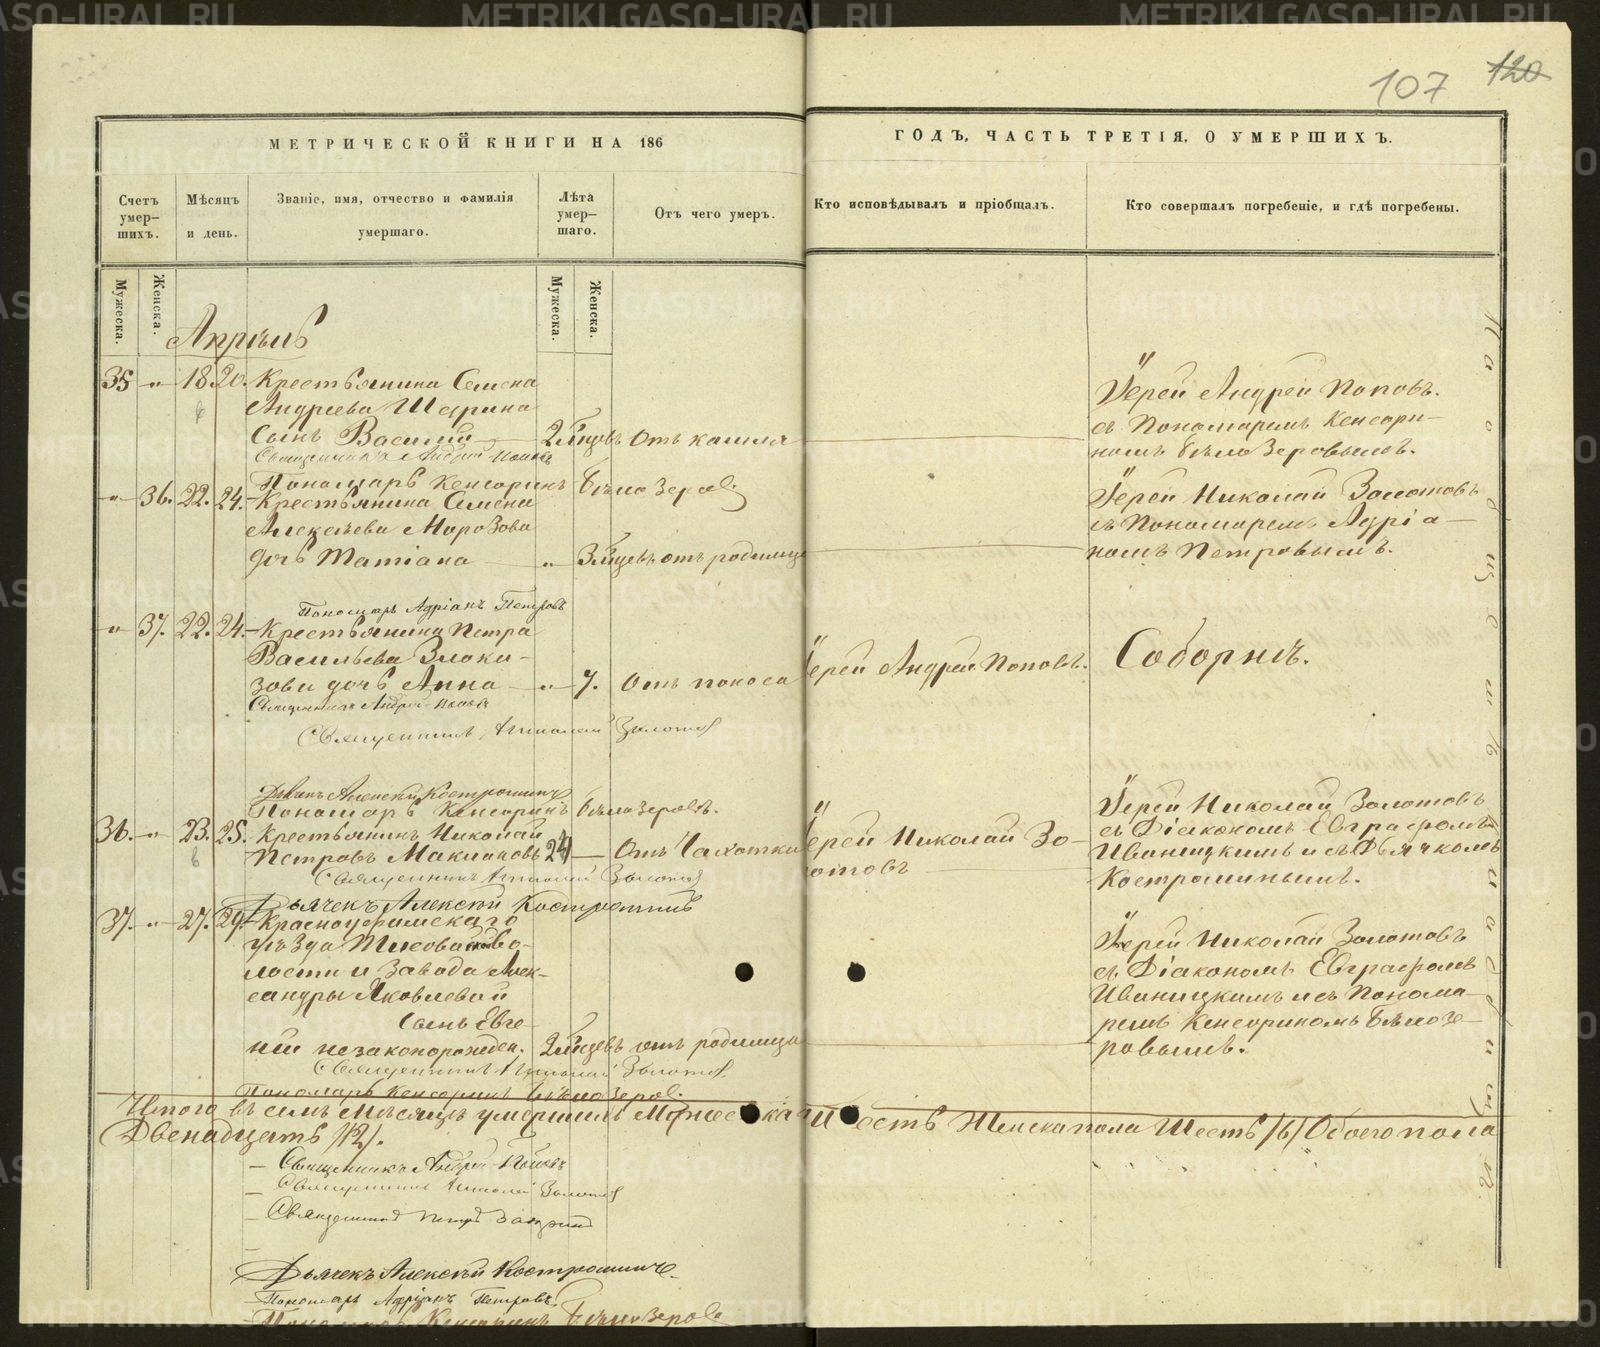 107 120
МЕТРИЧЕСКОЙ КНИГИ НА 186
ГОДЪ, ЧАСТЬ ТРЕТІЯ, О УМЕРШИХЪ.
Счетъ умер- шихъ.
Мѣсяцъ и день.
Званіе, имя, отчество и фамилія умершаго.
Лѣта умер- шаго.
Отъ чего умеръ.
Кто исповѣдывалъ и пріобщалъ.
Кто совершалъ погребеніе, и гдѣ погребены.
Мужеска. Женска. Мужеска. Женска.
Апрѣль
35 „ 18. 20. Крестьянина Семена
Андреева Шарина
сынъ Василій 2 мѣсцовъ Отъ кашля
Іерей Андрей Поповъ.
съ Пономаремъ Кенсори-
номъ Бѣлозеровымъ.
Священникъ Андрей Поповъ
Пономарь Кенсоринъ Бѣлозеровъ
„ 36. 22. 24. Крестьянина Семена
Алексѣева Морозова
дочь Татіана „ 3 мѣсцевъ отъ родимца
Іерей Николай Золотовъ
съ Пономаремъ Адріа-
номъ Петровымъ.
Пономарь Адріанъ Петровъ
„ 37. 22. 24. Крестьянина Петра
Васильева Злока-
зова дочь Анна „ 7. Отъ поноса
Іерей Андрей Поповъ.
Соборнѣ.
Священникъ Андрей Поповъ
Священникъ Николай Золотовъ
Дьячекъ Алексѣй Костроминъ
Пономарь Кенсоринъ Бѣлозеровъ.
36. „ 23. 25. Крестьянинъ Николай
Петровъ Макла​ковъ 24 — Отъ Чахотки
Іерей Николай Зо-
лотовъ
Іерей Николай Золотовъ
съ Діакономъ Евграфомъ
Иваницкимъ и съ Дьячкомъ
Костроминымъ.
Священникъ Николай Золотовъ
Дьячекъ Алексѣй Костроминъ
37. „ 27. 29. Красноуфимскаго
уѣзда Тисовской Во-
лости и Завода Алек-
сандры Яковлевой
сынъ Евге-
ній незаконорожден. 2 мѣсцевъ отъ родимца
Іерей Николай Золотовъ
съ Діакономъ Евграфомъ
Иваницкимъ и съ Понома-
ремъ Кенсориномъ Бѣлозе-
ровымъ.
Священникъ Николай Золотовъ
Пономарь Кенсоринъ Бѣлозеровъ.
Итого въ семъ Мѣсяцѣ умершихъ Мужеска Шесть Женска пола Шесть /6/ Обоего пола
Двенадцать /12/.
Священникъ Андрей Поповъ
Священникъ Николай Золотовъ
Священникъ Петръ
Дьячекъ Алексѣй Костроминъ.
Пономарь Адріанъ Петровъ.
Пономарь Кенсоринъ Бѣлозеровъ
METRIKI.GASO-URAL.RU